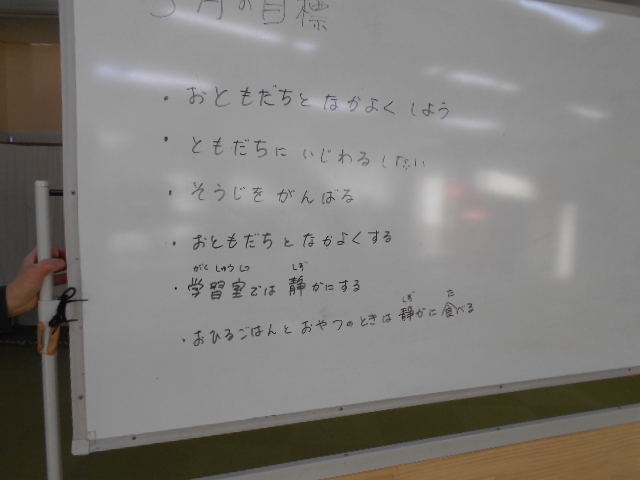 月の目標
・おともだちとなかよくしよう
・ともだちにいじわるしない
・そうじをがんばる
・おともだちとなかよくする
がくしゅうしつ しず
・学習室では静かにする
しず た
・おひるごはんとおやつのときは静かに食べる